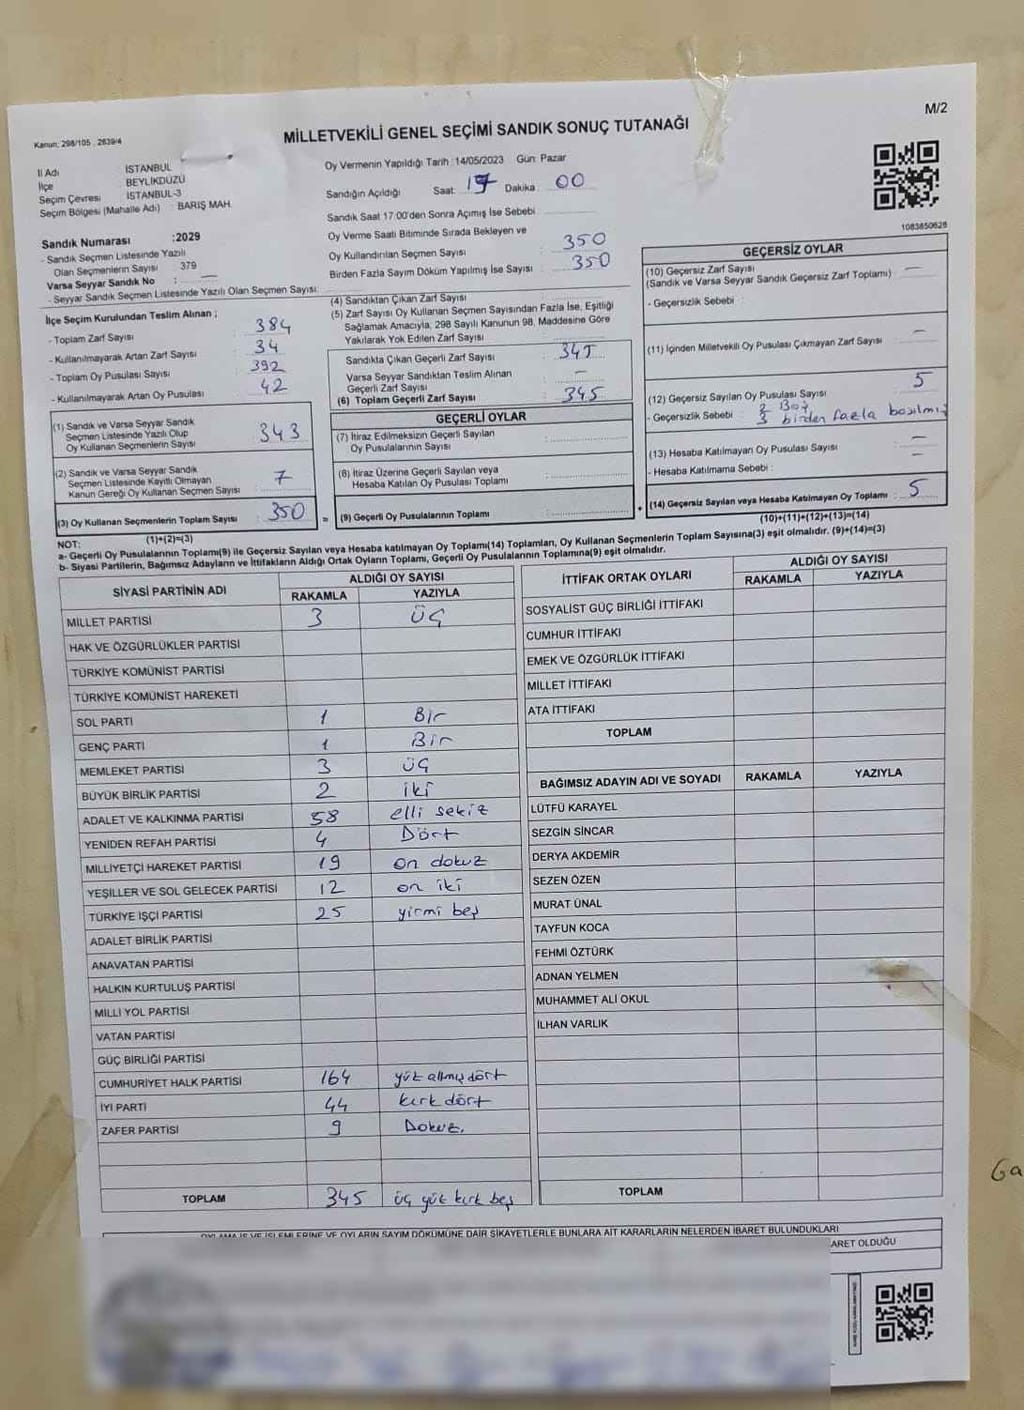 M/2
Kanun: 298/105 , 2839/4
MİLLETVEKİLİ GENEL SEÇİMİ SANDIK SONUÇ TUTANAĞI
İl Adı İSTANBUL
İlçe BEYLİKDÜZÜ
Seçim Çevresi İSTANBUL-3
Seçim Bölgesi (Mahalle Adı) : BARIŞ MAH.
Oy Vermenin Yapıldığı Tarih :14/05/2023 Gün: Pazar
Sandığın Açıldığı Saat: 17 Dakika : 00
Sandık Saat 17:00'den Sonra Açımış İse Sebebi
Oy Verme Saati Bitiminde Sırada Bekleyen ve
Oy Kullandırılan Seçmen Sayısı : 350
Birden Fazla Sayım Döküm Yapılmış İse Sayısı : 350
1083850628
Sandık Numarası :2029
- Sandık Seçmen Listesinde Yazılı
Olan Seçmenlerin Sayısı 379
Varsa Seyyar Sandık No : —
- Seyyar Sandık Seçmen Listesinde Yazılı Olan Seçmen Sayısı:
İlçe Seçim Kurulundan Teslim Alınan ;
- Toplam Zarf Sayısı : 384
- Kullanılmayarak Artan Zarf Sayısı : 34
- Toplam Oy Pusulası Sayısı : 392
- Kullanılmayarak Artan Oy Pusulası : 42
(1) Sandık ve Varsa Seyyar Sandık
Seçmen Listesinde Yazılı Olup
Oy Kullanan Seçmenlerin Sayısı : 343
(2) Sandık ve Varsa Seyyar Sandık
Seçmen Listesinde Kayıtlı Olmayan
Kanun Gereği Oy Kullanan Seçmen Sayısı : 7
(3) Oy Kullanan Seçmenlerin Toplam Sayısı : 350
(1)+(2)=(3)
(4) Sandıktan Çıkan Zarf Sayısı :
(5) Zarf Sayısı Oy Kullanan Seçmen Sayısından Fazla İse, Eşitliği
Sağlamak Amacıyla, 298 Sayılı Kanunun 98. Maddesine Göre
Yakılarak Yok Edilen Zarf Sayısı :
Sandıkta Çıkan Geçerli Zarf Sayısı : 345
Varsa Seyyar Sandıktan Teslim Alınan
Geçerli Zarf Sayısı : —
(6) Toplam Geçerli Zarf Sayısı : 345
GEÇERLİ OYLAR
(7) İtiraz Edilmeksizin Geçerli Sayılan
Oy Pusulalarının Sayısı :
(8) İtiraz Üzerine Geçerli Sayılan veya
Hesaba Katılan Oy Pusulası Toplamı :
= (9) Geçerli Oy Pusulalarının Toplamı :
GEÇERSİZ OYLAR
(10) Geçersiz Zarf Sayısı : —
(Sandık ve Varsa Seyyar Sandık Geçersiz Zarf Toplamı)
- Geçersizlik Sebebi :
(11) İçinden Milletvekili Oy Pusulası Çıkmayan Zarf Sayısı : —
(12) Geçersiz Sayılan Oy Pusulası Sayısı : 5
- Geçersizlik Sebebi : 2 Boş
3 birden fazla basılmış
(13) Hesaba Katılmayan Oy Pusulası Sayısı : —
- Hesaba Katılmama Sebebi : —
+ (14) Geçersiz Sayılan veya Hesaba Katılmayan Oy Toplamı : 5
(10)+(11)+(12)+(13)=(14)
NOT:
a- Geçerli Oy Pusulalarının Toplamı(9) ile Geçersiz Sayılan veya Hesaba katılmayan Oy Toplamı(14) Toplamları, Oy Kullanan Seçmenlerin Toplam Sayısına(3) eşit olmalıdır. (9)+(14)=(3)
b- Siyasi Partilerin, Bağımsız Adayların ve İttifakların Aldığı Ortak Oyların Toplamı, Geçerli Oy Pusulalarının Toplamına(9) eşit olmalıdır.
SİYASİ PARTİNİN ADI ALDIĞI OY SAYISI
RAKAMLA YAZIYLA
MİLLET PARTİSİ 3 üç
HAK VE ÖZGÜRLÜKLER PARTİSİ
TÜRKİYE KOMÜNİST PARTİSİ
TÜRKİYE KOMÜNİST HAREKETİ
SOL PARTİ 1 Bir
GENÇ PARTİ 1 Bir
MEMLEKET PARTİSİ 3 üç
BÜYÜK BİRLİK PARTİSİ 2 iki
ADALET VE KALKINMA PARTİSİ 58 elli sekiz
YENİDEN REFAH PARTİSİ 4 Dört
MİLLİYETÇİ HAREKET PARTİSİ 19 on dokuz
YEŞİLLER VE SOL GELECEK PARTİSİ 12 on iki
TÜRKİYE İŞÇİ PARTİSİ 25 yirmi beş
ADALET BİRLİK PARTİSİ
ANAVATAN PARTİSİ
HALKIN KURTULUŞ PARTİSİ
MİLLİ YOL PARTİSİ
VATAN PARTİSİ
GÜÇ BİRLİĞİ PARTİSİ
CUMHURİYET HALK PARTİSİ 164 yüz altmış dört
İYİ PARTİ 44 kırk dört
ZAFER PARTİSİ 9 Dokuz.
TOPLAM 345 üç yüz kırk beş
İTTİFAK ORTAK OYLARI ALDIĞI OY SAYISI
RAKAMLA YAZIYLA
SOSYALİST GÜÇ BİRLİĞİ İTTİFAKI
CUMHUR İTTİFAKI
EMEK VE ÖZGÜRLÜK İTTİFAKI
MİLLET İTTİFAKI
ATA İTTİFAKI
TOPLAM
BAĞIMSIZ ADAYIN ADI VE SOYADI RAKAMLA YAZIYLA
LÜTFÜ KARAYEL
SEZGİN SİNCAR
DERYA AKDEMİR
SEZEN ÖZEN
MURAT ÜNAL
TAYFUN KOCA
FEHMİ ÖZTÜRK
ADNAN YELMEN
MUHAMMET ALİ OKUL
İLHAN VARLIK
TOPLAM
Ga
OYLAMA İŞ VE İŞLEMLERİNE VE OYLARIN SAYIM DÖKÜMÜNE DAİR ŞİKAYETLERLE BUNLARA AİT KARARLARIN NELERDEN İBARET BULUNDUKLARI
ARET OLDUĞU